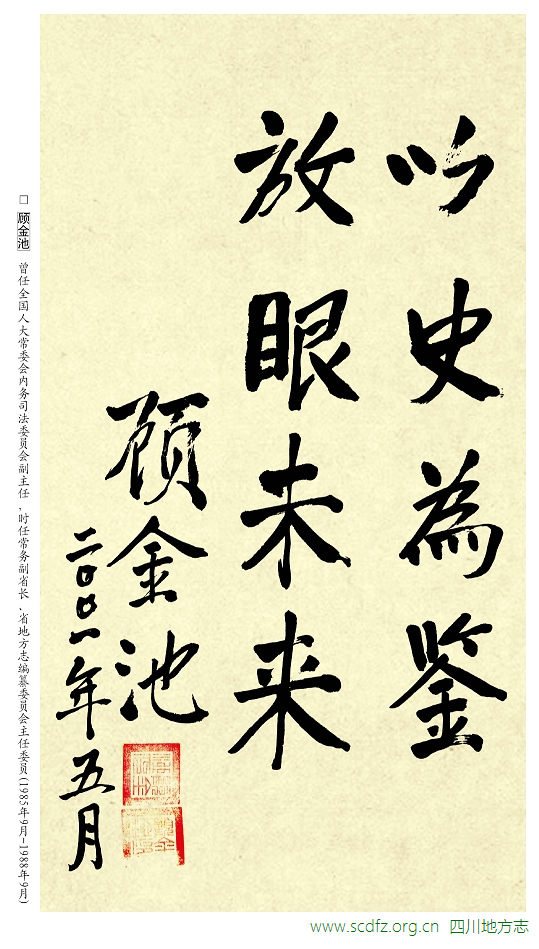 以史為鉴
放眼未来
顾金池
二〇〇一年五月
□ 顾金池 曾任全国人大常委会内务司法委员会副主任、时任常务副省长、省地方志编纂委员会主任委员(1985年9月-1988年9月)
www.scdfz.org.cn 四川地方志